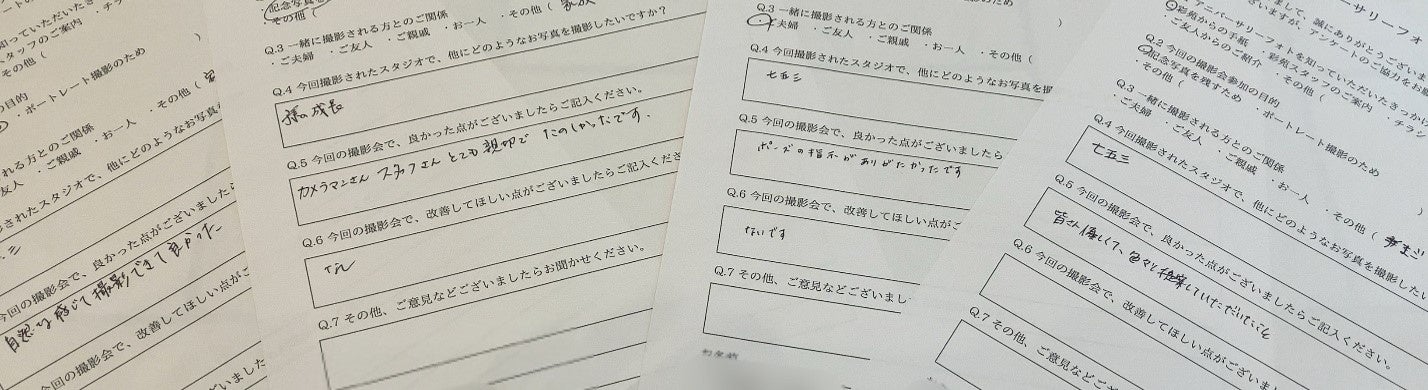 知っていただいた
スタッフのご案内
・その他（
の目的
・ポートレート撮影のため
れる方とのご関係
友人 ・ご親戚 ・お一人 ・その他（
影されたスタジオで、他にどのようなお写真を
今回の撮影会で、良かった点がございましたら
自然な感じで撮影できて良かった
今回の撮影会で、改善してほしい点がご
記念写真を
・その他（
Q.3 一緒に撮影される方とのご関係
・ご夫婦 ・ご友人 ・ご親戚 ・お一人 ・その他（家族
Q.4 今回撮影されたスタジオで、他にどのようなお写真を撮影したいですか？
孫の成長
Q.5 今回の撮影会で、良かった点がございましたらご記入ください。
カメラマンさん スタッフさん とても親切で たのしかったです．
Q.6 今回の撮影会で、改善してほしい点がございましたらご記入くだ
Q.7 その他、ご意見などございましたらお聞かせください。
・その他（
Q.3 一緒に撮影される方とのご関係
・ご夫婦 ・ご友人 ・ご親戚 ・お一人 ・その他（
Q.4 今回撮影されたスタジオで、他にどのようなお写真を撮
七五三
Q.5 今回の撮影会で、良かった点がございましたら
ポーズの指示がありがたかったです
Q.6 今回の撮影会で、改善してほしい点がご
ないです
Q.7 その他、ご意見などございまし
バーサリーフォ
まして、誠にありがとうござい
ざいますが、アンケートのご協力をお願
アニバーサリーフォトを知っていただいたきっか
・彩苑からの手紙 ・彩苑スタッフのご案内 ・チラシ
・ご友人からのご紹介 ・その他（
Q.2 今回の撮影会参加の目的
・記念写真を残すため ・ポートレート撮影のため
・その他（
Q.3 一緒に撮影される方とのご関係
・ご夫婦 ・ご友人 ・ご親戚 ・お一人 ・その他（
Q.4 今回撮影されたスタジオで、他にどのようなお写真を撮影したい
七五三
Q.5 今回の撮影会で、良かった点がございましたらご記入ください。
皆さん優しくて、色々と提案していただいたこと
Q.6 今回の撮影会で、改善してほしい点がございましたらご
Q.7 その他、ご意見などございましたら